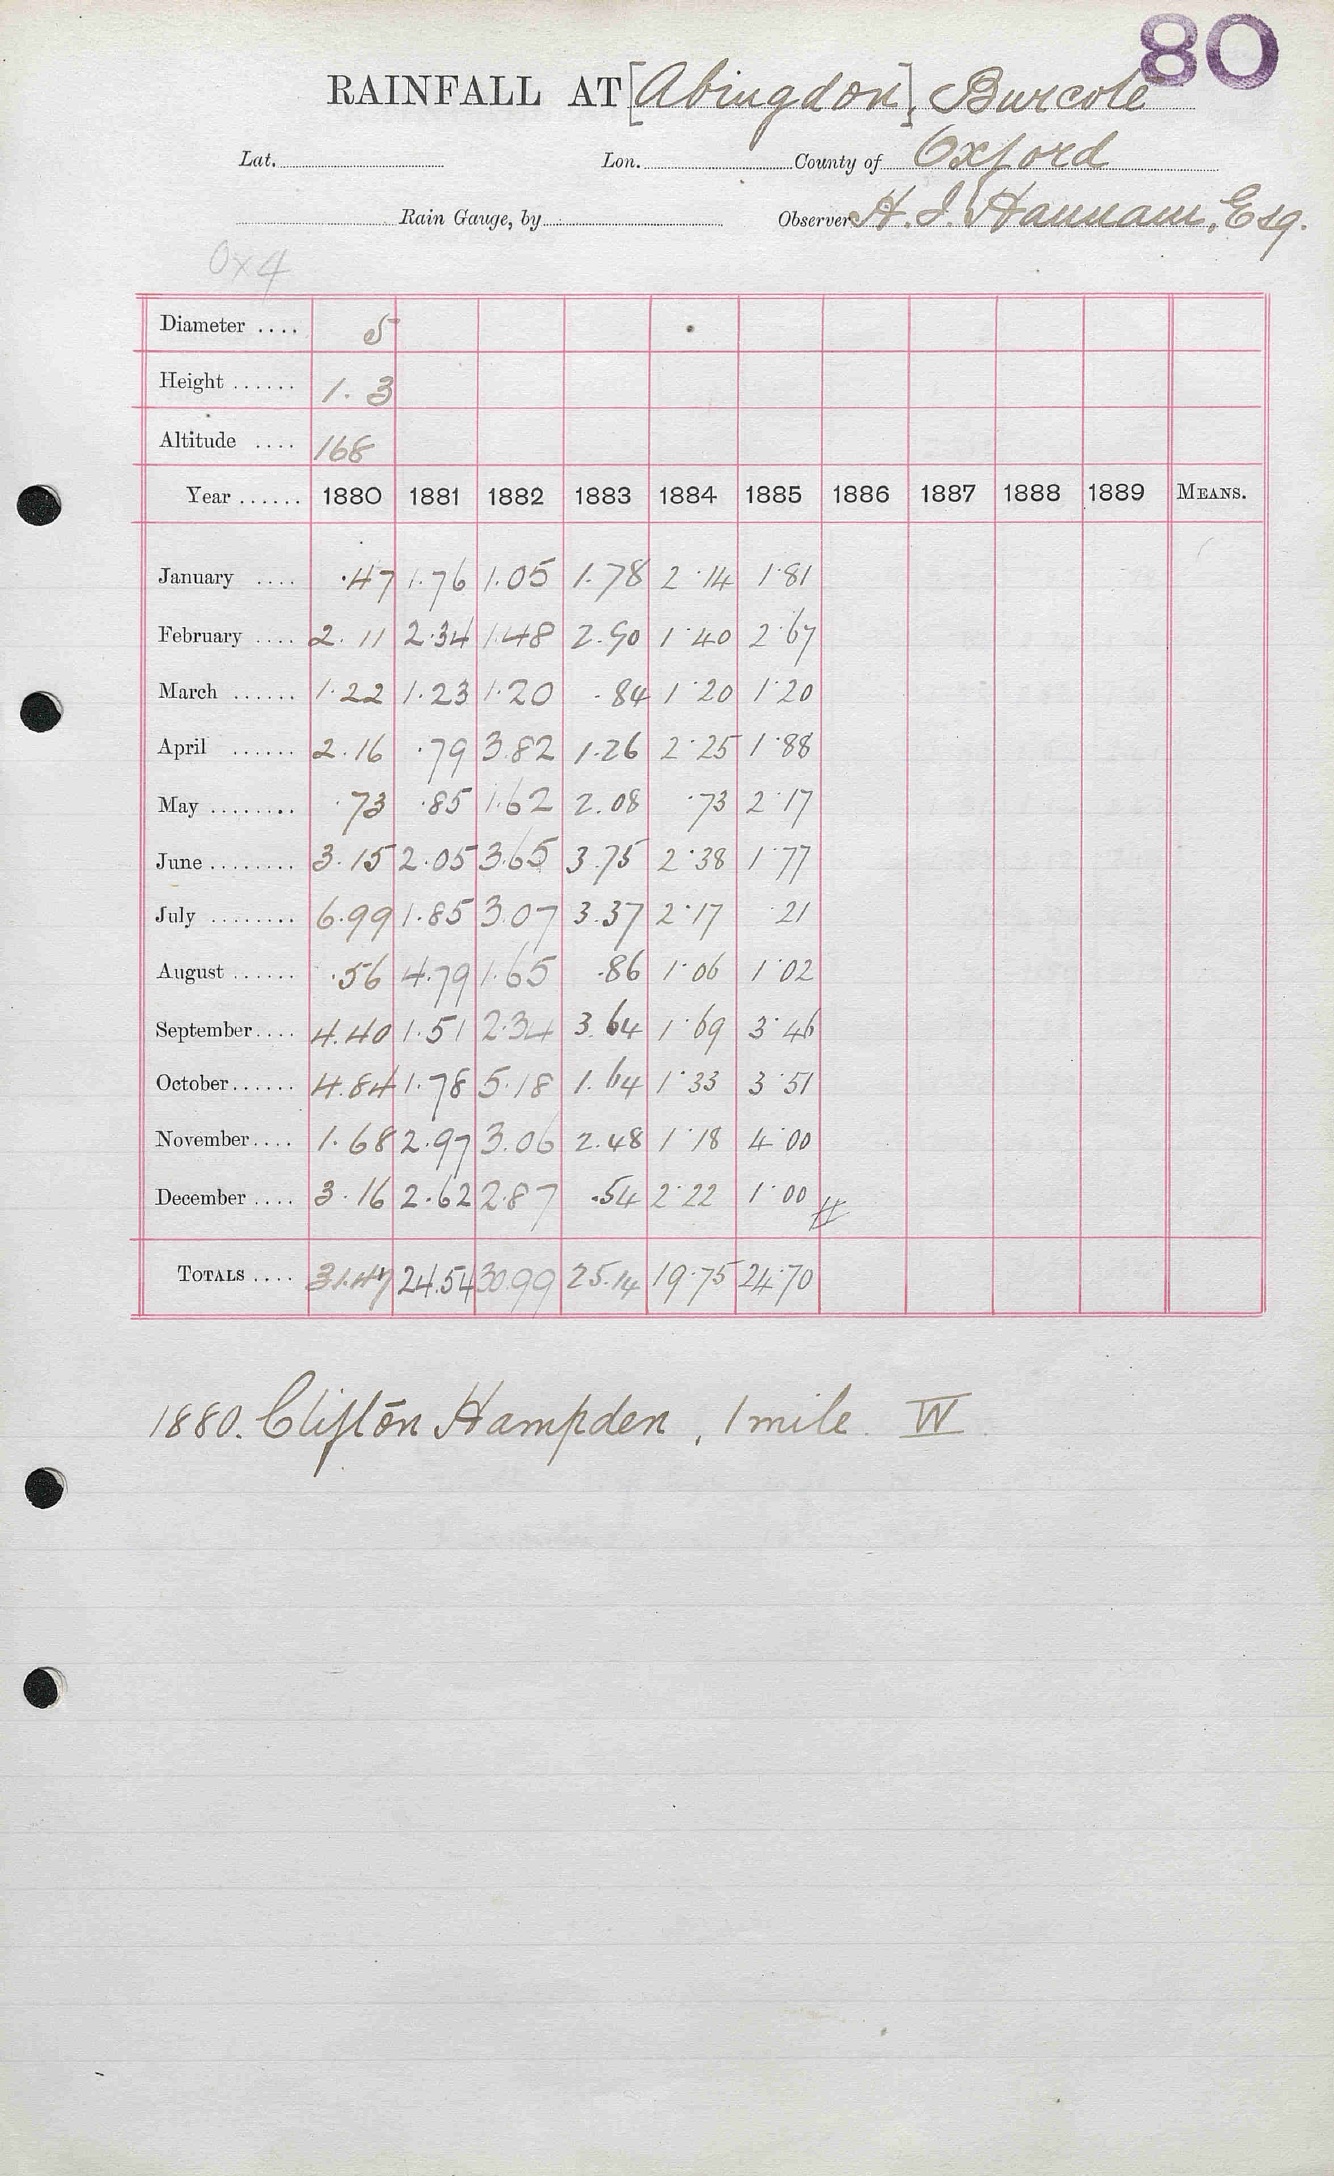 80
RAINFALL AT [Abingdon], Burcote
Lat. Lon. County of Oxford
Rain Gauge, by Observer H. J. Hannam, Esq.
Ox4
Diameter .... 5
Height ...... 1.3
Altitude .... 168
Year ...... 1880 1881 1882 1883 1884 1885 1886 1887 1888 1889 MEANS.
January .... .47 1.76 1.05 1.78 2.14 1.81
February .... 2.11 2.34 1.48 2.90 1.40 2.67
March ...... 1.22 1.23 1.20 .84 1.20 1.20
April ...... 2.16 .79 3.82 1.26 2.25 1.88
May ........ .73 .85 1.62 2.08 .73 2.17
June ........ 3.15 2.05 3.65 3.75 2.38 1.77
July ........ 6.99 1.85 3.07 3.37 2.17 .21
August ...... .56 4.79 1.65 .86 1.06 1.02
September .... 4.40 1.51 2.34 3.64 1.69 3.46
October ...... 4.84 1.78 5.18 1.64 1.33 3.51
November .... 1.68 2.97 3.06 2.48 1.18 4.00
December .... 3.16 2.62 2.87 .54 2.22 1.00
TOTALS .... 31.47 24.54 30.99 25.14 19.75 24.70
1880. Clifton Hampden, 1 mile W